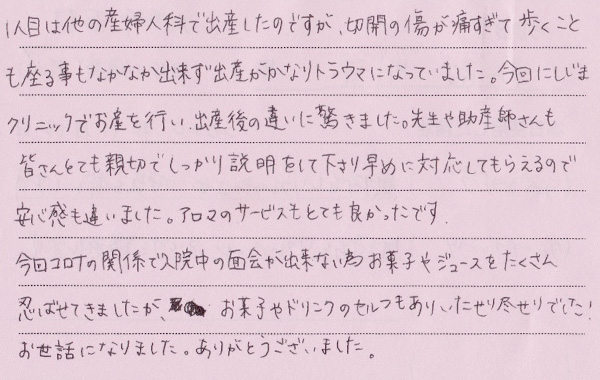 1人目は他の産婦人科で出産したのですが、切開の傷が痛すぎて歩くこと
も座る事もなかなか出来ず出産がかなりトラウマになっていました。今回にしじま
クリニックでお産を行い、出産後の違いに驚きました。先生や助産師さんも
皆さんとても親切でしっかり説明をして下さり早めに対応してもらえるので
安心感も違いました。アロマのサービスもとても良かったです。
今回コロナの関係で入院中の面会が出来ない為お菓子やジュースをたくさん
忍ばせてきましたが、お菓子やドリンクのセルフもあり、いたせり尽せりでした!
お世話になりました。ありがとうございました。